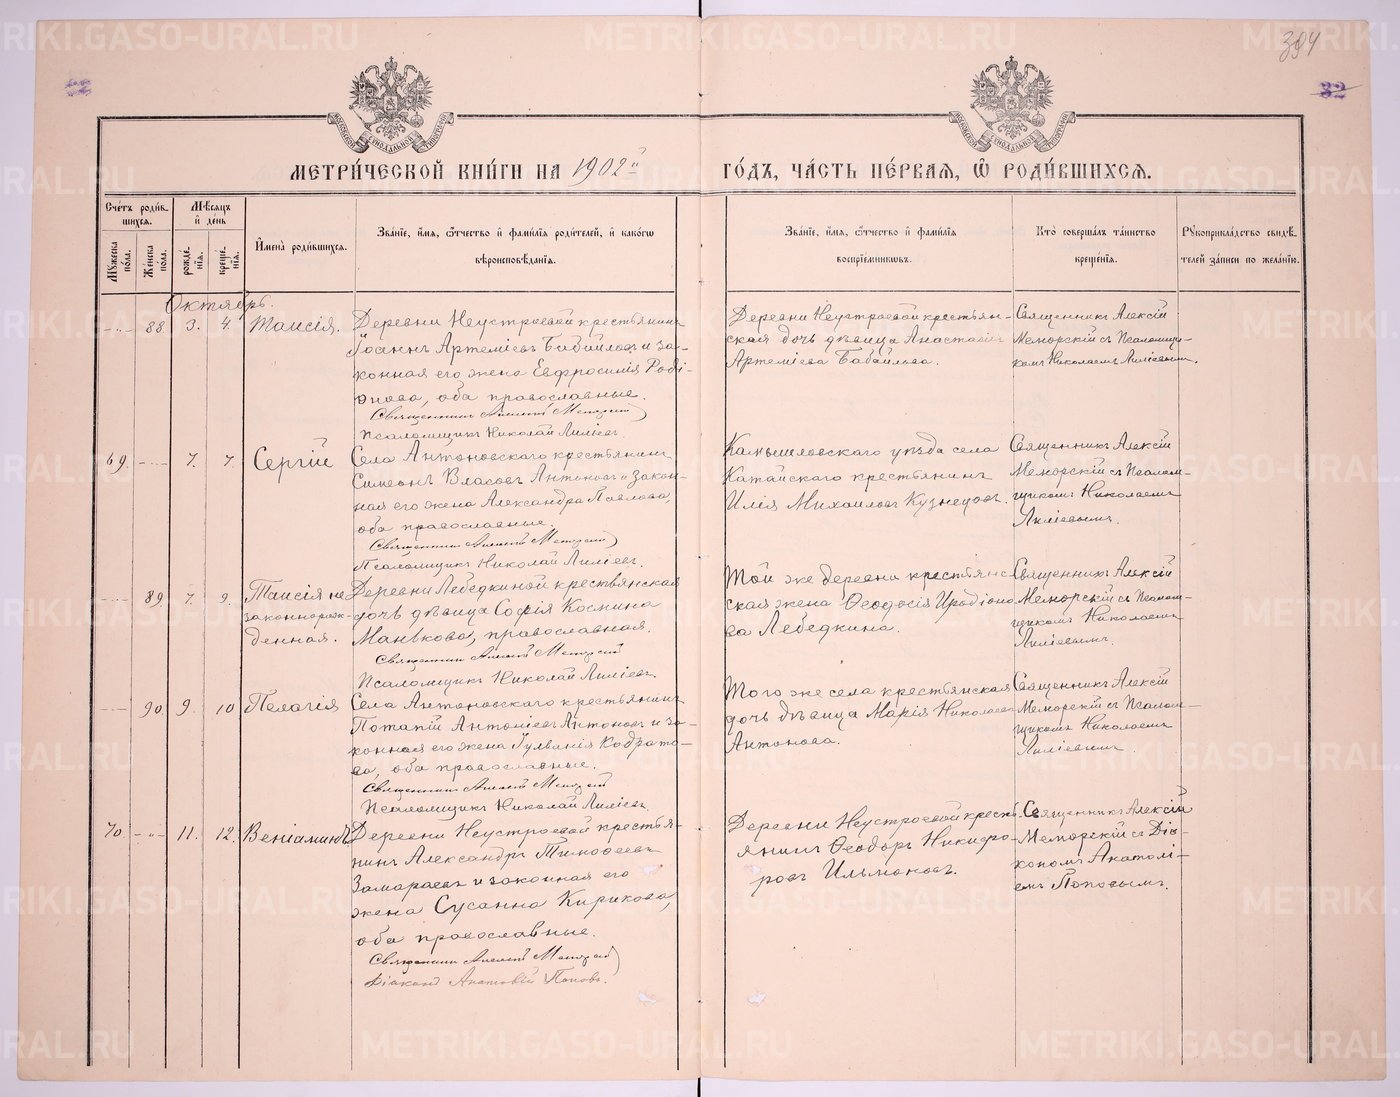 394
32
МЕТРИ́ЧЕСКОЙ КНИ́ГИ НА 1902й ГО́ДЪ, ЧА́СТЬ ПЕ́РВАѦ, Ѡ҆ РОДИ́ВШИХСѦ.
Сче́тъ роди́в-
шихсѧ.
Мѣ́сѧцъ
и҆ де́нь
Мꙋ́жеска по́ла.
Же́нска по́ла.
рожде́-
нїѧ.
креще́-
нїѧ.
И҆мена̀ роди́вшихсѧ.
Зва́нїе, и҆́мѧ, ѻ҆́тчество и҆ фами́лїѧ роди́телей, и҆ како́гѡ
вѣроисповѣ́данїѧ.
Зва́нїе, и҆́мѧ, ѻ҆́тчество и҆ фами́лїѧ
воспрїе́мникѡвъ.
Кто̀ соверша́лъ та́инство
креще́нїѧ.
Рꙋкоприкла́дство свидѣ́-
телей за́писи по жела́нїю.
Октябрь.
-"- 88. 3. 4. Таисія.
Деревни Неустроевой крестьянинъ
Іоаннъ Артеміевъ Бабайловъ и за-
конная его жена Евфросинія Роді-
онова, оба православные.
Священникъ Алексій Меморскій
Псаломщикъ Николай Лиліевъ.
Деревни Неустроевой крестьян-
ская дочь дѣвица Анастасія
Артеміева Бабайлова.
Священникъ Алексій
Меморскій съ Псаломщи-
комъ Николаемъ Лиліевымъ.
69. -"- 7. 7. Сергій
Села Антоновскаго крестьянинъ
Симеонъ Власовъ Антоновъ и закон-
ная его жена Александра Павлова,
оба православные.
Священникъ Алексій Меморскій
Псаломщикъ Николай Лиліевъ.
Камышловскаго уѣзда села
Катайскаго крестьянинъ
Илія Михаиловъ Кузнецовъ.
Священникъ Алексій
Меморскій съ Псалом-
щикомъ Николаемъ
Лиліевымъ.
-"- 89. 7. 9. Таисія не-
законнорож-
денная.
Деревни Лебедкиной крестьянская
дочь дѣвица Софія Космина
Манькова, православная.
Священникъ Алексій Меморскій
Псаломщикъ Николай Лиліевъ.
Той же деревни крестьян-
ская жена Ѳеодосія Иродіоно-
ва Лебедкина.
Священникъ Алексій
Меморскій съ Псалом-
щикомъ Николаемъ
Лиліевымъ.
-"- 90. 9. 10 Пелагія
Села Антоновскаго крестьянинъ
Потапій Антоніевъ Антоновъ и за-
конная его жена Гулванія Кодрато-
ва, оба православные.
Священникъ Алексій Меморскій
Псаломщикъ Николай Лиліевъ.
Того же села крестьянская
дочь дѣвица Марія Николаева
Антонова.
Священникъ Алексій
Меморскій съ Псалом-
щикомъ Николаемъ
Лиліевымъ.
70. -"- 11. 12. Веніаминъ
Деревни Неустроевой крестья-
нинъ Александръ Тимоѳеевъ
Замараевъ и законная его
жена Сусанна Кирикова,
оба православные.
Священникъ Алексій Меморскій
Діаконъ Анатолій Поповъ.
Деревни Неустроевой кресть-
янинъ Ѳеодоръ Никифо-
ровъ Ильтоновъ.
Священникъ Алексій
Меморскій съ Діа-
кономъ Анатолі-
емъ Поповымъ.
METRIKI.GASO-URAL.RU